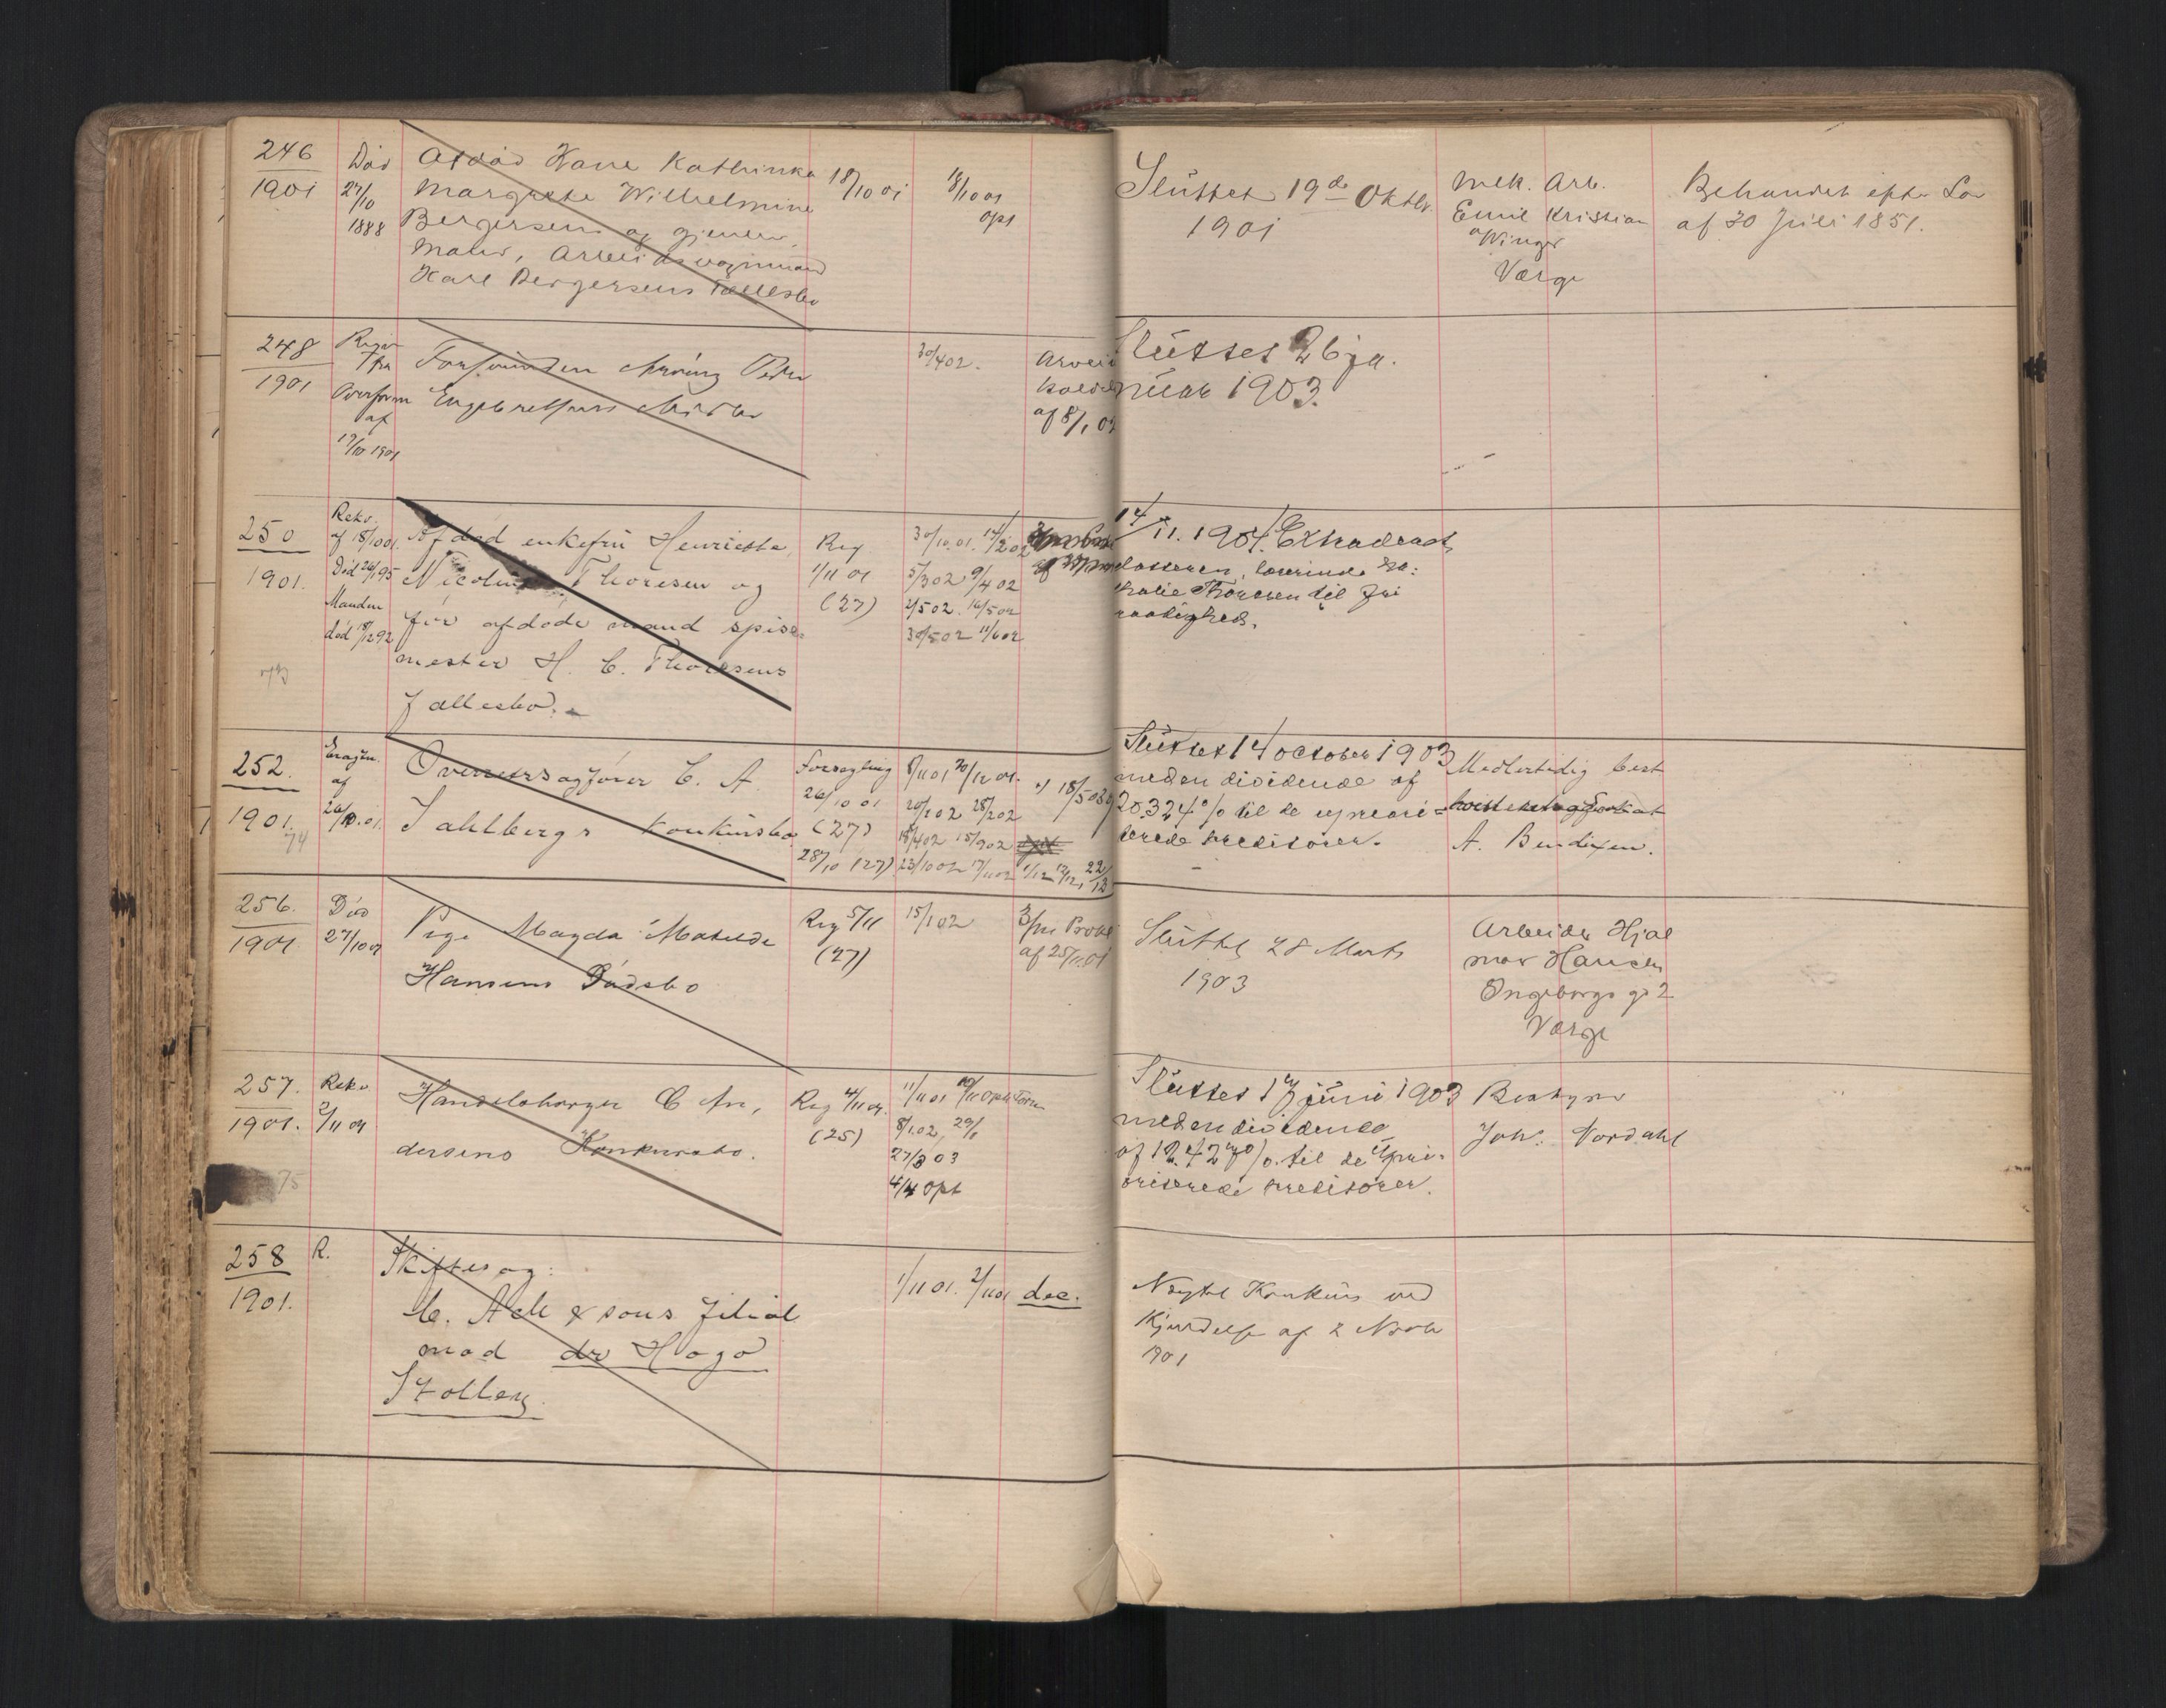 246
1901
Død
27/10
1888
Afdød Kone Kathinka
Margrethe Wilhelmine
Bergersens og gjenlev.
Mands, Arbeidsvognmand
Karl Bergersens Fællesbo
18/10 01
18/10 01
opt
Sluttet 19de Oktbr
1901
Mek. Arb.
Emil Kristian
Winger
Værge
Behandlet efter Lov
af 30 Juli 1851.
248
1901
af
17/10 1901
Forsvunden
Engebretsens
30/4 02.
af 8/1 02
Sluttet 26 ja-
nuar 1903.
250
1901.
Rekv.
af 18/10 01.
Død 26/1 95
Manden
død 18/12 92
Afdød enkefru Henriette
Nicoline Thoresen og
før afdøde mand spise-
mester H. C. Thoresens
fællesbo.
Reg
1/11 01
(27)
30/10.01. 14/2 02
5/3 02 9/4 02
2/5 02. 16/5 02
30/5 02 11/6 02
14/11. 1904. Extraderet
lærerinde
Thoresen til fri
raadighed.
252.
1901.
74
af
26/10.01.
Overretssagfører C. A
Fahlbergs konkursbo
Forsegling
26/10 01
(27)
28/10 (27)
8/11 01 20/12 01.
20/1 02 28/2 02
18/4 02 15/9 02
23/10 02 17/11 02
18/5 03
1/12 12/12 22/12
Sluttet 14 october 1903
med en dividende af
20.324% til de uprior-
terede kreditorer.
Midlertidig best
A. Bendixen.
256.
1901.
Død
27/10 01
Pige Magda Matilde
Hansens Dødsbo
Reg 5/11
(27)
15/1 02
af 25/11.01
Sluttet 28 Marts
1903
Arbeider Hjal
mar Hansen
Ingeborgs gt 2
Værge
257.
1901.
75
Rekv
2/11 01
Handelsborger C An,
dersens Konkursbo.
Reg 4/11 01.
(25)
11/11 01
8/1.02, 29/1
27/3 03
4/4 opt
Sluttet 17 juni 1903
med en dividende
af 12.427% til de upri-
oriterede kreditorer.
Bestyrer
Joh. Nordahl
258
1901.
R.
Skiftesag:
filial
mod dr Hago
Stolberg.
1/11 01. 2/11 01 dec.
Nægtet Konkurs ved
Kjendelse af 2 Novbr
1901